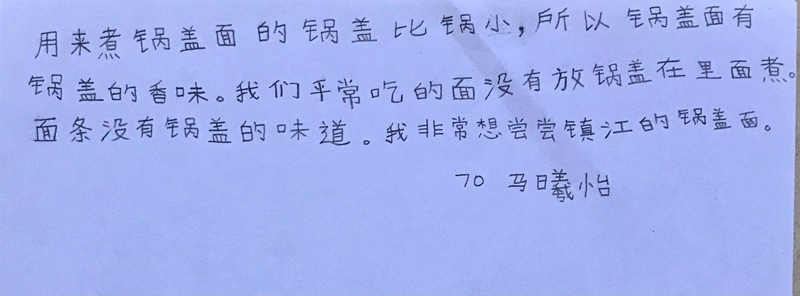 用来煮锅盖面的锅盖比锅小，所以锅盖面有
锅盖的香味。我们平常吃的面没有放锅盖在里面煮。
面条没有锅盖的味道。我非常想尝尝镇江的锅盖面。
70 马曦怡